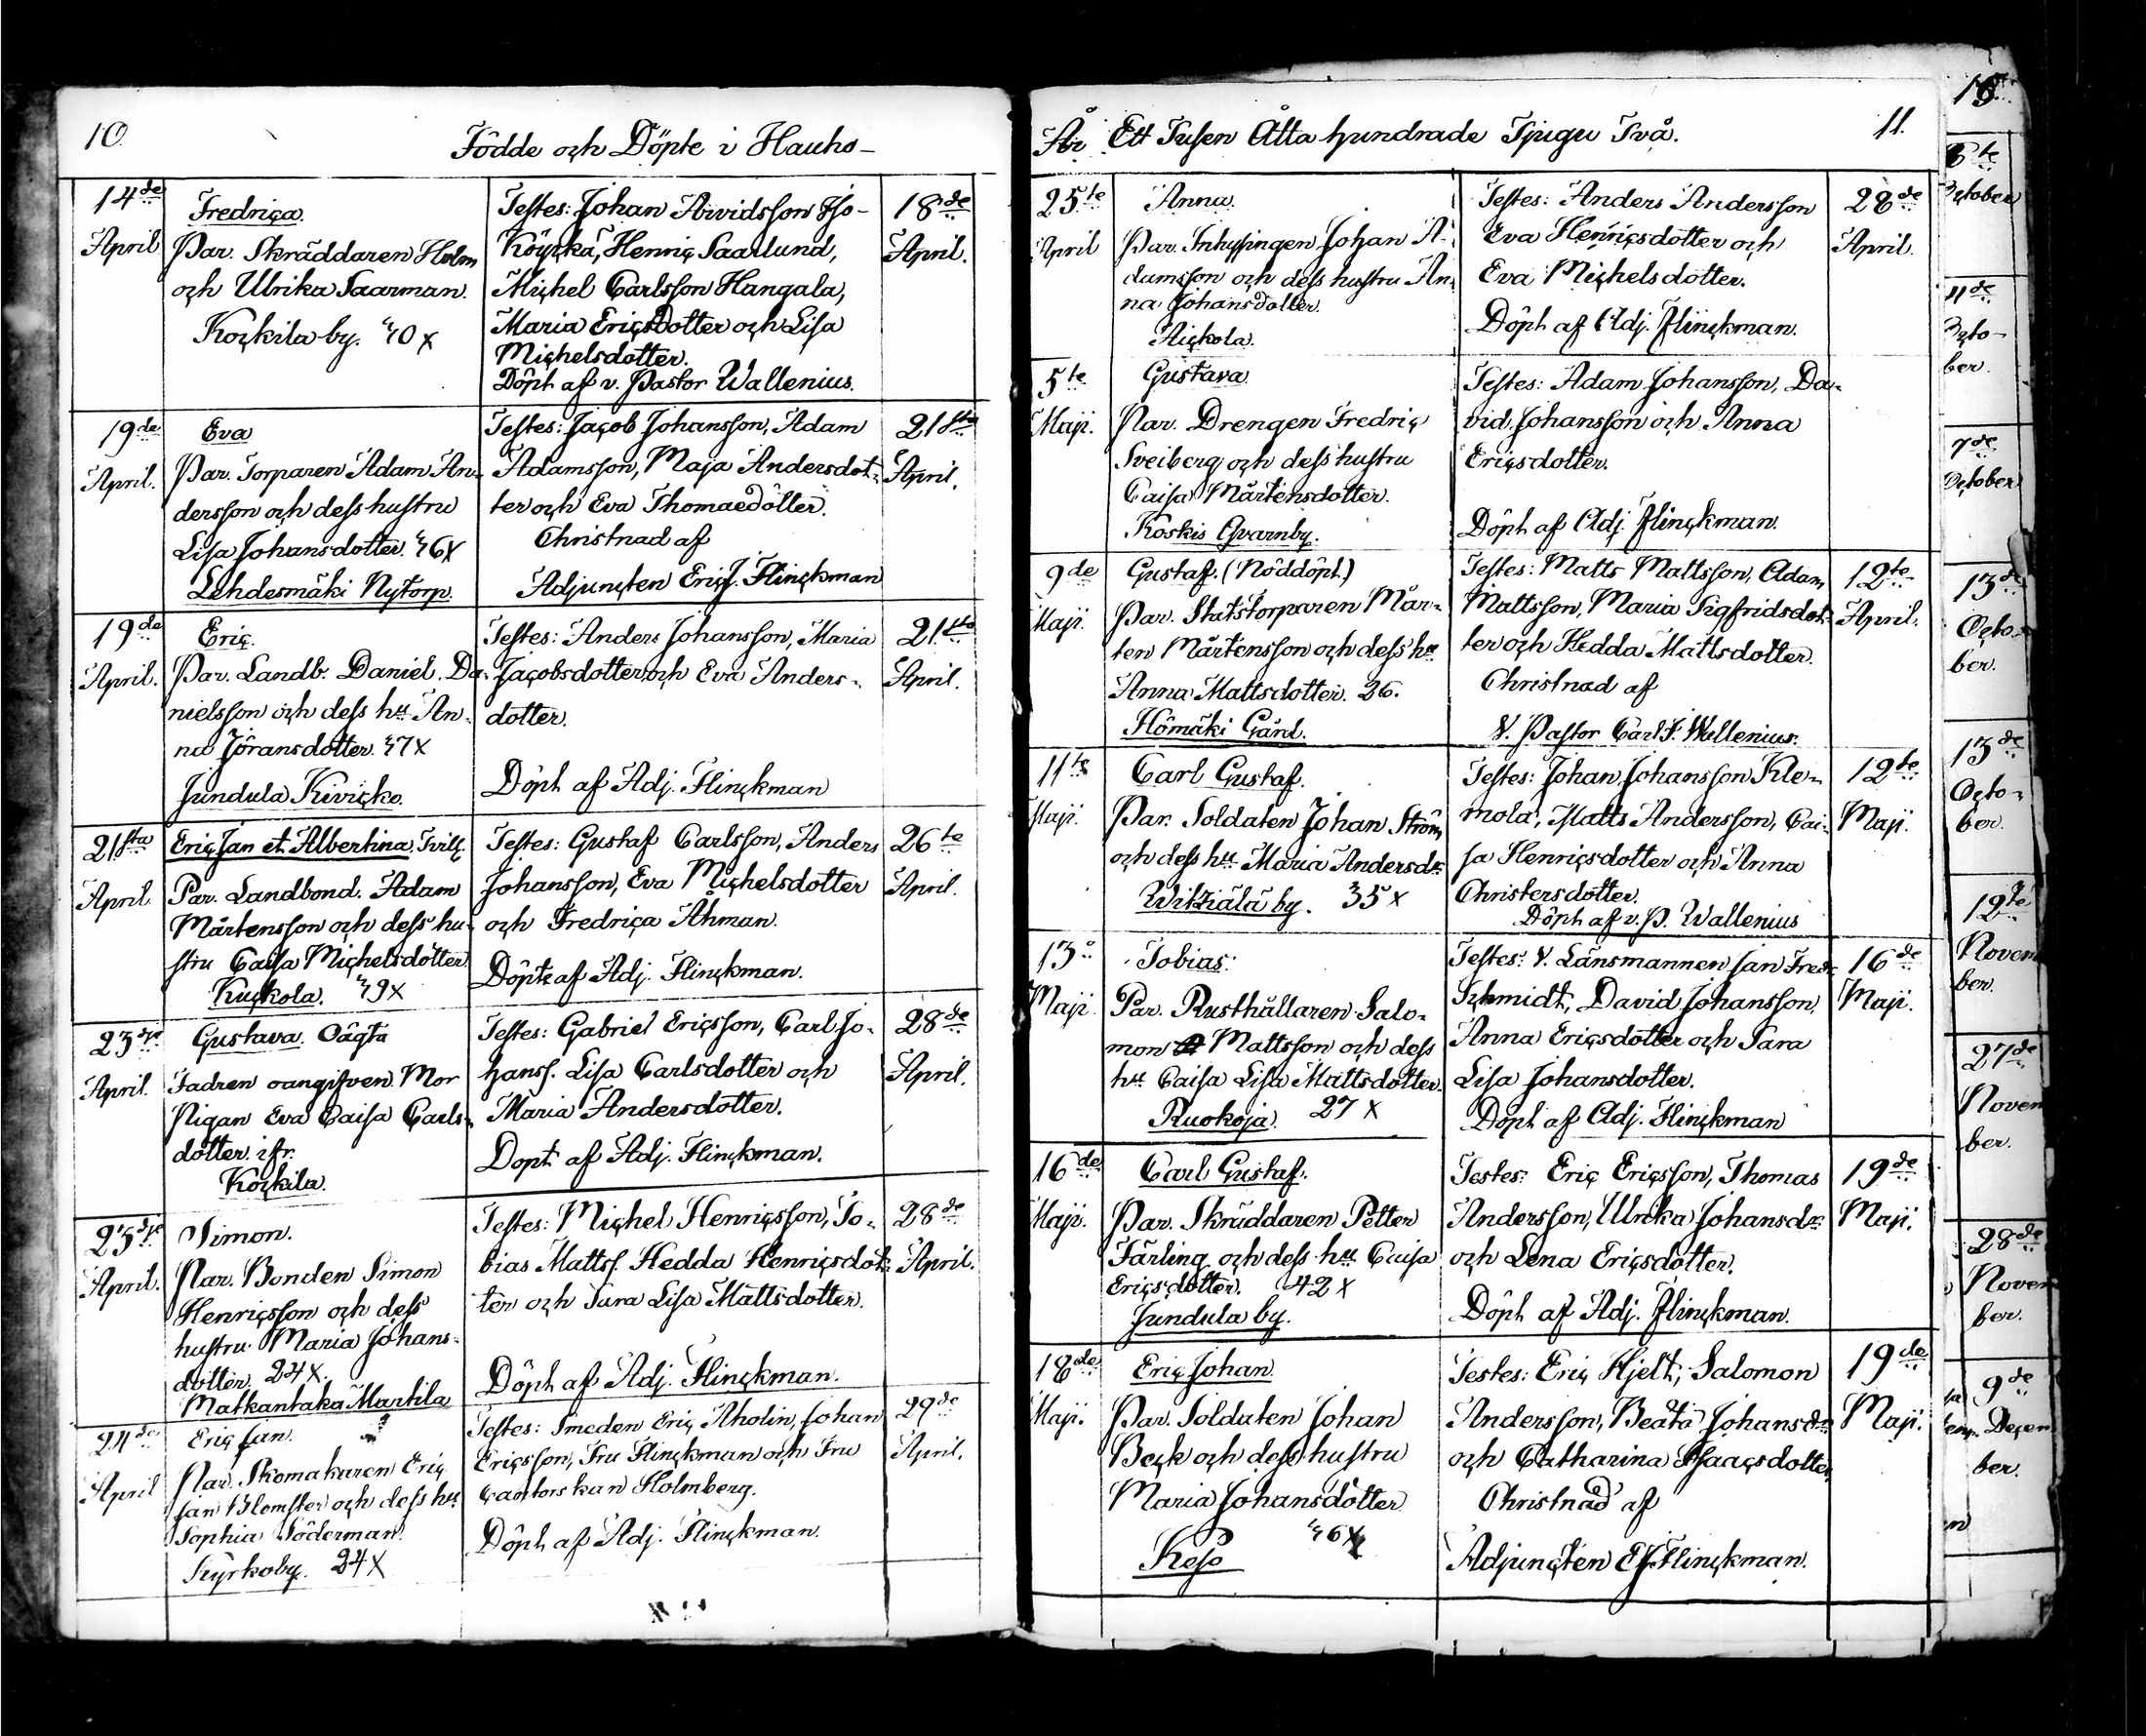 10.
Födde och Döpte i Hauho-
14de
April
Fredrica.
Par. Skräddaren Holm
och Ulrika Saarman.
Kockila by. 40 x
Testes: Johan Arvidsson Iso-
Köyckä, Henric Saarlund,
Michel Carlsson Hangala,
Maria Ericsdotter och Lisa
Michelsdotter.
Döpt af v. Pastor Wallenius.
18de
April.
19de
April.
Eva
Par. Torparen Adam An-
dersson och dess hustru
Lisa Johansdotter. 46x
Lehdesmäki Nytorp.
Testes: Jacob Johansson, Adam
Adamsson, Maja Andersdot-
ter och Eva Thomaedotter.
Christnad af
Adjuncten Eric J. Flinckman
21sta
April.
19de
April.
Eric.
Par. Landb. Daniel Da-
nielsson och dess hu An-
na Jöransdotter. 47x
Jundula Kivicko.
Testes: Anders Johansson, Maria
Jacobsdotter och Eva Anders-
dotter.
Döpt af Adj. Flinckman
21sta
April.
21sta
April.
Eric Jan et Albertina, Tvill.
Par. Landbond. Adam
Mårtensson och dess hu-
stru Caisa Michelsdotter
Kuckola. 49x
Testes: Gustaf Carlsson, Anders
Johansson, Eva Michelsdotter
och Fredrica Åhman.
Döpte af Adj. Flinckman.
26te
April.
23dje
April.
Gustava. Oägta
Fadren oangifven Mor
Pigan Eva Caisa Carls-
dotter. ifr.
Kockila.
Testes: Gabriel Ericsson, Carl Jo-
hanss. Lisa Carlsdotter och
Maria Andersdotter.
Döpt af Adj. Flinckman.
28de
April.
23dje
April.
Simon.
Par. Bonden Simon
Henricsson och dess
hustru Maria Johans-
dotter. 24x.
Matkantaka Martila
Testes: Michel Henricsson, To-
bias Matts. Hedda Henricsdot-
ter och Sara Lisa Mattsdotter.
Döpt af Adj. Flinckman.
28de
April.
24de
April
Eric Jan.
Par. Skomakaren Eric
Jan Blomster och dess hu.
Sophia Söderman.
Kyrkoby. 24x
Testes: Smeden Eric Aholin, Johan
Ericsson, Fru Flinckman och Fru
Cantorskan Holmberg.
Döpt af Adj. Flinckman.
29de
April.
År Ett Tusen Åtta hundrade Tjugu Två.
11.
25te
April
Anna.
Par. Inhysingen Johan A-
damsson och dess hustru An-
na Johansdotter.
Aickola.
Testes: Anders Andersson
Eva Henricsdotter och
Eva Michelsdotter.
Döpt af Adj. Flinckman.
28de
April.
5te
Maji.
Gustava.
Par. Drengen Fredric
Sveiberg och dess hustru
Caisa Mårtensdotter.
Koskis Qvarnby.
Testes: Adam Johansson, Da-
vid Johansson och Anna
Ericsdotter.
Döpt af Adj. Flinckman.
9de
Maji.
Gustaf. (Nöddöpt)
Par. Statstorparen Mår-
ten Mårtensson och dess hu
Anna Mattsdotter. 26.
Hömäki Gård.
Testes: Matts Mattsson, Adam
Mattsson, Maria Sigfridsdot-
ter och Hedda Mattsdotter.
Christnad af
V. Pastor Carl F. Wallenius.
12te
April.
11te
Maji.
Carl Gustaf.
Par. Soldaten Johan Ström
och dess hu Maria Andersdr.
Witziälä by. 35x
Testes: Johan Johansson Kle-
mola, Matts Andersson, Cai-
sa Henricsdotter och Anna
Christersdotter.
Döpt af v. P. Wallenius
12te
Maji.
13
Maji.
Tobias.
Par. Rusthållaren Salo-
mon Mattsson och dess
hu Caisa Lisa Mattsdotter.
Ruokoja. 27 x
Testes: V. Länsmannen Jan Fredr.
Schmidt, David Johansson,
Anna Ericsdotter och Sara
Lisa Johansdotter.
Döpt af Adj. Flinckman
16de
Maji.
16de
Maji.
Carl Gustaf.
Par. Skräddaren Petter
Färling och dess hu Caisa
Ericsdotter. 42x
Jundula by.
Testes: Eric Ericsson, Thomas
Andersson, Ulrika Johansdr
och Lena Ericsdotter.
Döpt af Adj. Flinckman.
19de
Maji.
18de
Maji.
Eric Johan.
Par. Soldaten Johan
Beck och dess hustru
Maria Johansdotter
46x
Keso
Testes: Eric Hjelt, Salomon
Andersson, Beata Johansdr
och Catharina Isaacsdotter,
Christnad af
Adjuncten E.J. Flinckman.
19de
Maji.
6te
October
11de
Octo-
ber.
7de
October
13de
Octo-
ber.
13de
Octo-
ber.
12te
Novem
ber.
27de
Novem
ber.
28de
Novem
ber.
9de
Decem
ber.